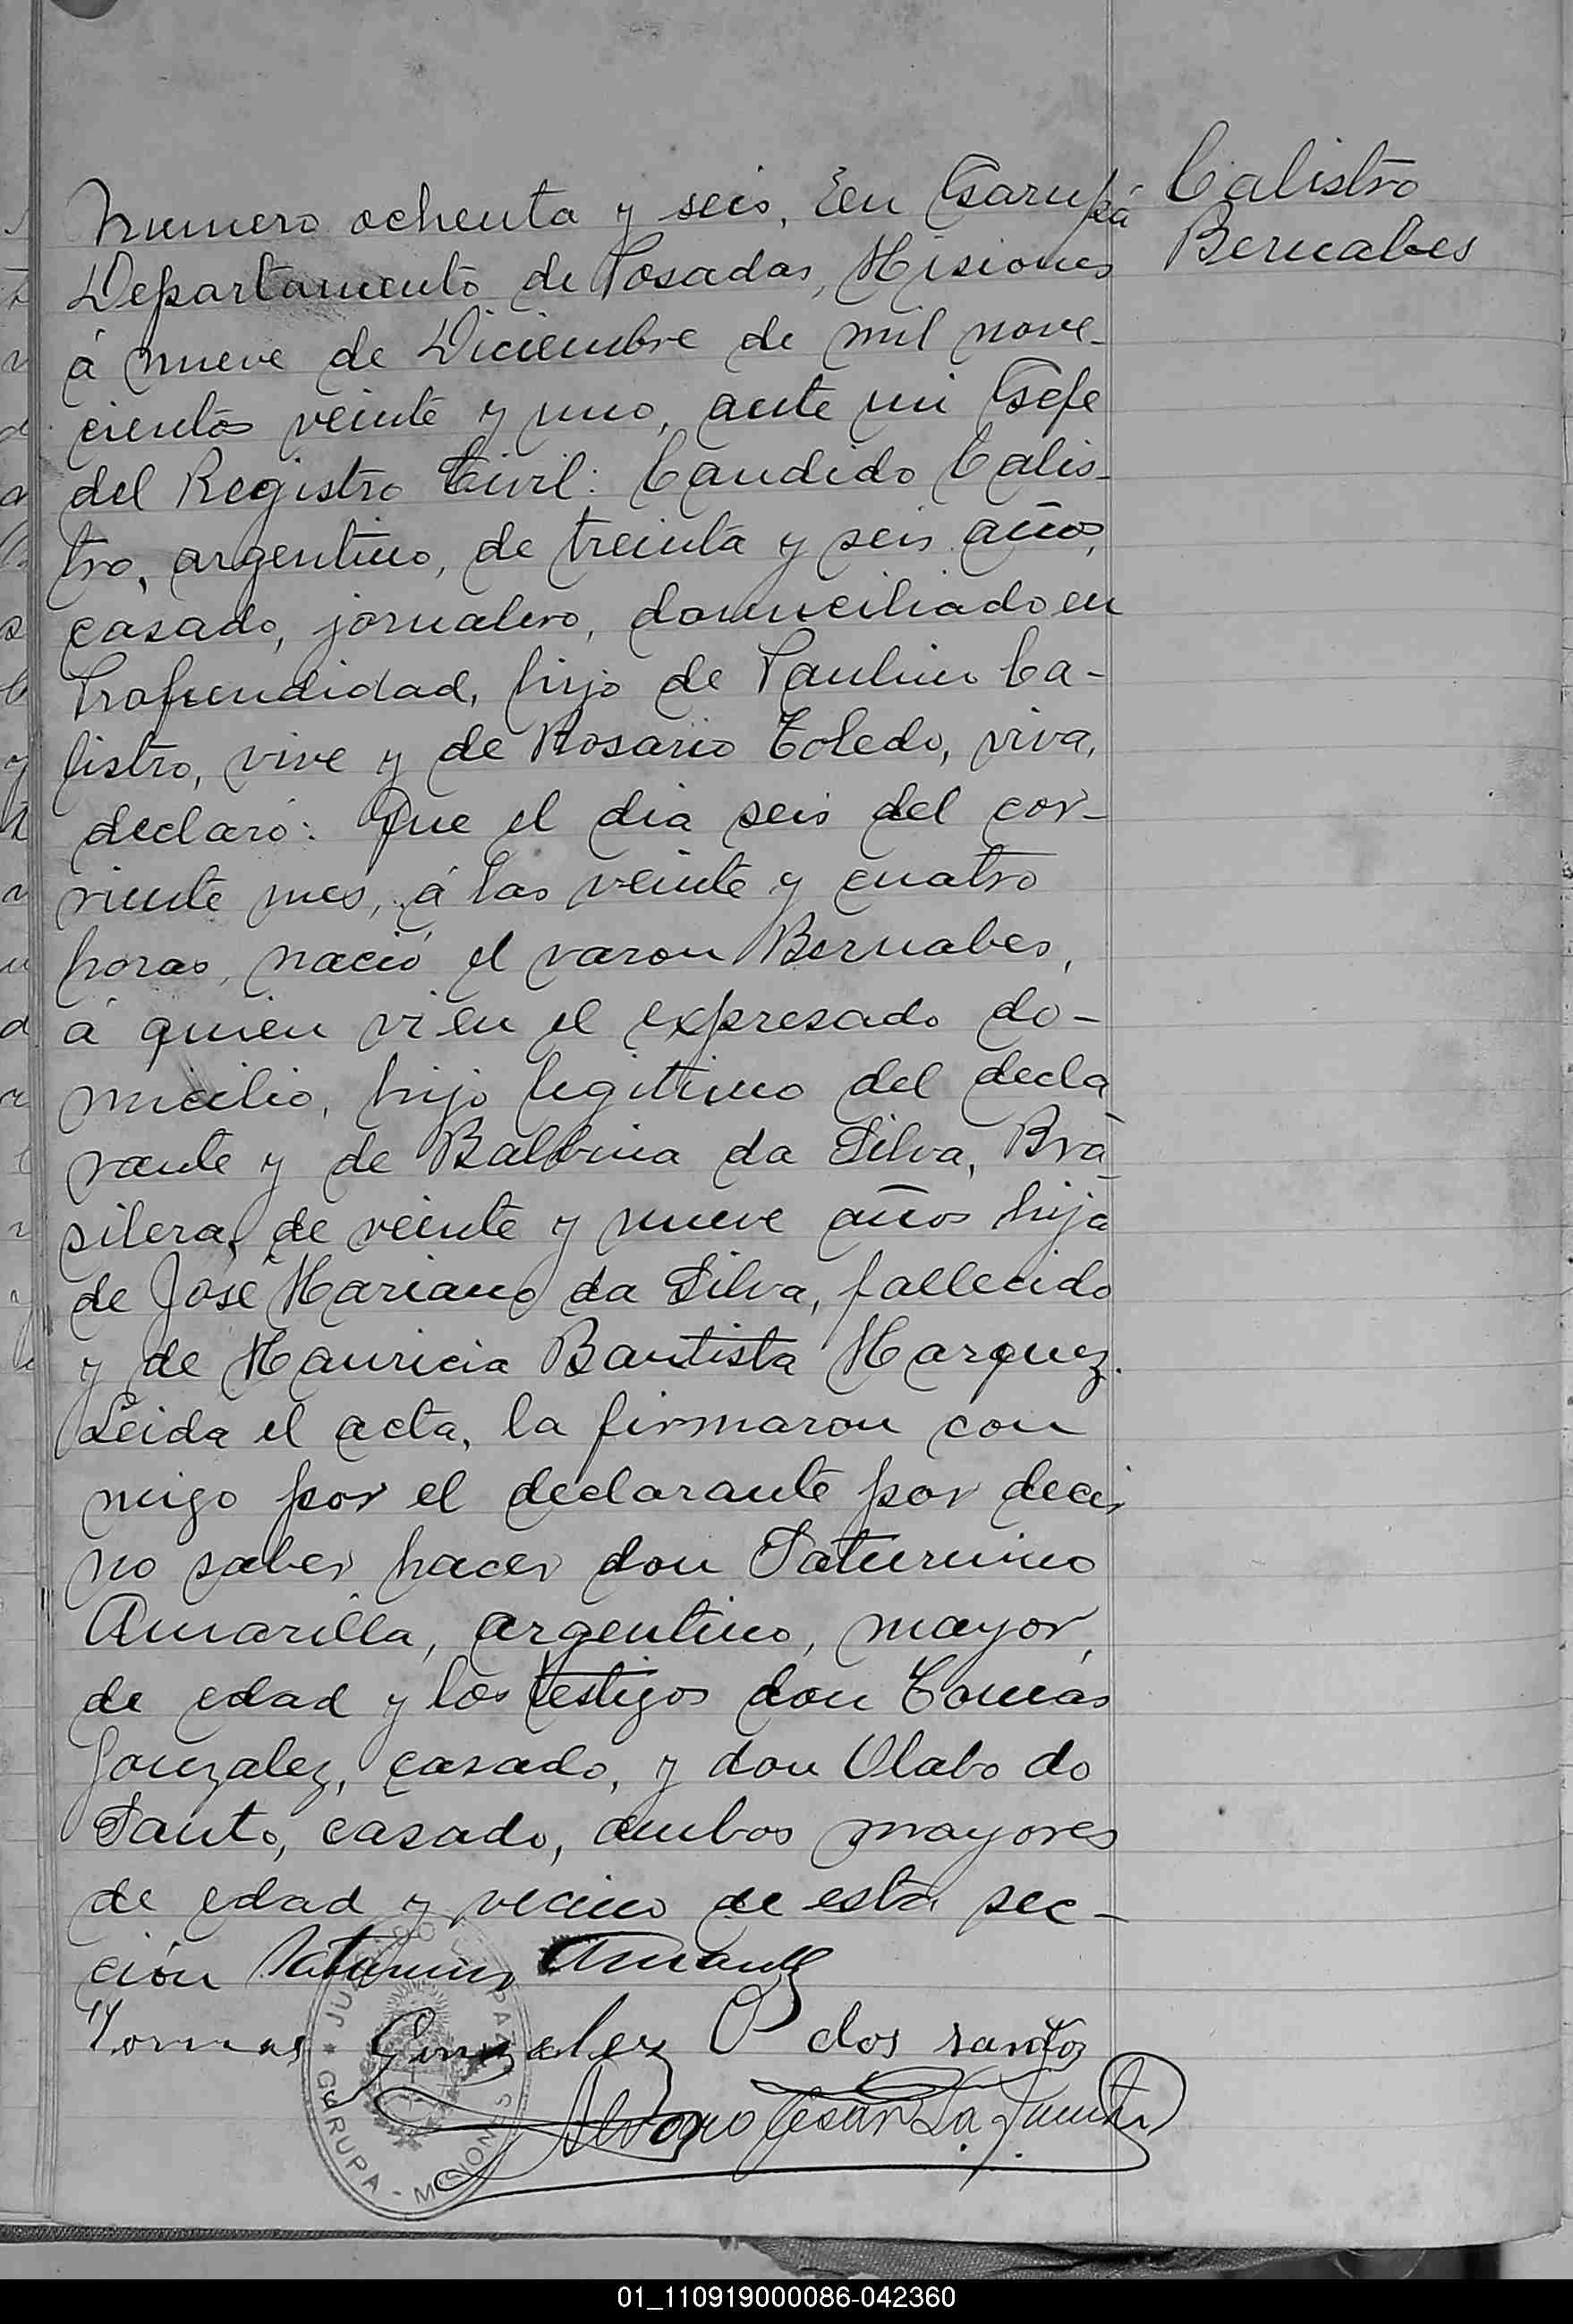 Calistro
Bernabes
Numero ochenta y seis, En Garupá
Departamento de Posadas, Misiones
á nueve de Diciembre de mil nove-
cientos veinte y uno, ante mi Gefe
del Registro Civil: Candido Calis-
tro, argentino, de treinta y seis años,
casado, jornalero, domiciliado en
Profundidad, hijo de Paulino Ca-
listro, vive y de Rosario Toledo, viva,
declaró: Que el dia seis del cor-
riente mes, á las veinte y cuatro
horas, nació el varon Bernabes,
á quien vi en el expresado do-
micilio, hijo legitimo del decla
rante y de Balbina da Silva, Bra-
silera, de veinte y nueve años hija
de José Mariano da Silva, fallecido
y de Mauricia Bautista Marquez.
Leida el acta, la firmaron con
migo por el declarante por decir
no saber hacer don Saturnino
Amarilla, argentino, mayor,
de edad y los testigos don Tomás
Gonzalez, casado, y don Olabo do
Santo, casado, ambos mayores
de edad y vecino de esta sec-
ción Saturnino Amarilla
Tomas Gonzalez O dos santos
JUZGADO DE PAZ
GARUPA - MISIONES
Cesar La
01_110919000086-042360